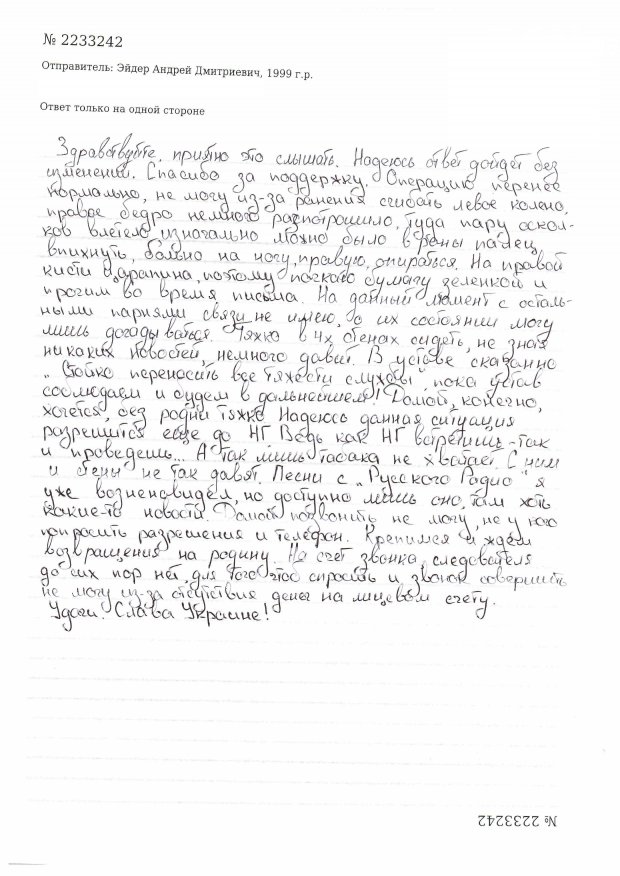 № 2233242
Отправитель: Эйдер Андрей Дмитриевич, 1999 г.р.
Ответ только на одной стороне
Здравствуйте, приятно это слышать. Надеюсь ответ дойдет без
изменений. Спасибо за поддержку. Операцию перенес
нормально, не могу из-за ранения сгибать левое колено,
правое бедро немного распотрошило, туда пару оскол-
ков влетело, изначально можно было в раны палец
впихнуть, больно на ногу, правую, опираться. На правой
кисти царапина, поэтому пачкаю бумагу зеленкой и
прочим во время письма. На данный момент с осталь-
ными парнями связи не имею, о их состоянии могу
лишь догадываться. Тяжко в 4х стенах сидеть, не зная
никаких новостей, немного давит. В уставе сказанно
„Стойко переносить все тяжести службы", пока устав
соблюдаем и будем в дальнейшем! Домой, конечно,
хочется, без родни тяжко Надеюсь данная ситуация
разрешится еще до НГ Ведь как НГ встретишь - так
и проведешь... А так лишь табака не хватает. С ним
и стены не так давят. Песни с „Русского Радио" я
уже возненавидел, но доступно лишь оно, там хоть
какие-то новости. Домой позвонить не могу, не у кого
попросить разрешения и телефон. Крепимся и ждем
возвращения на родину. На счет звонка, следователя
до сих пор нет, для того чтоб спросить и звонок совершить
не могу из-за отсутствия денег на лицевом счету.
Удачи. Слава Украине!
№ 2233242